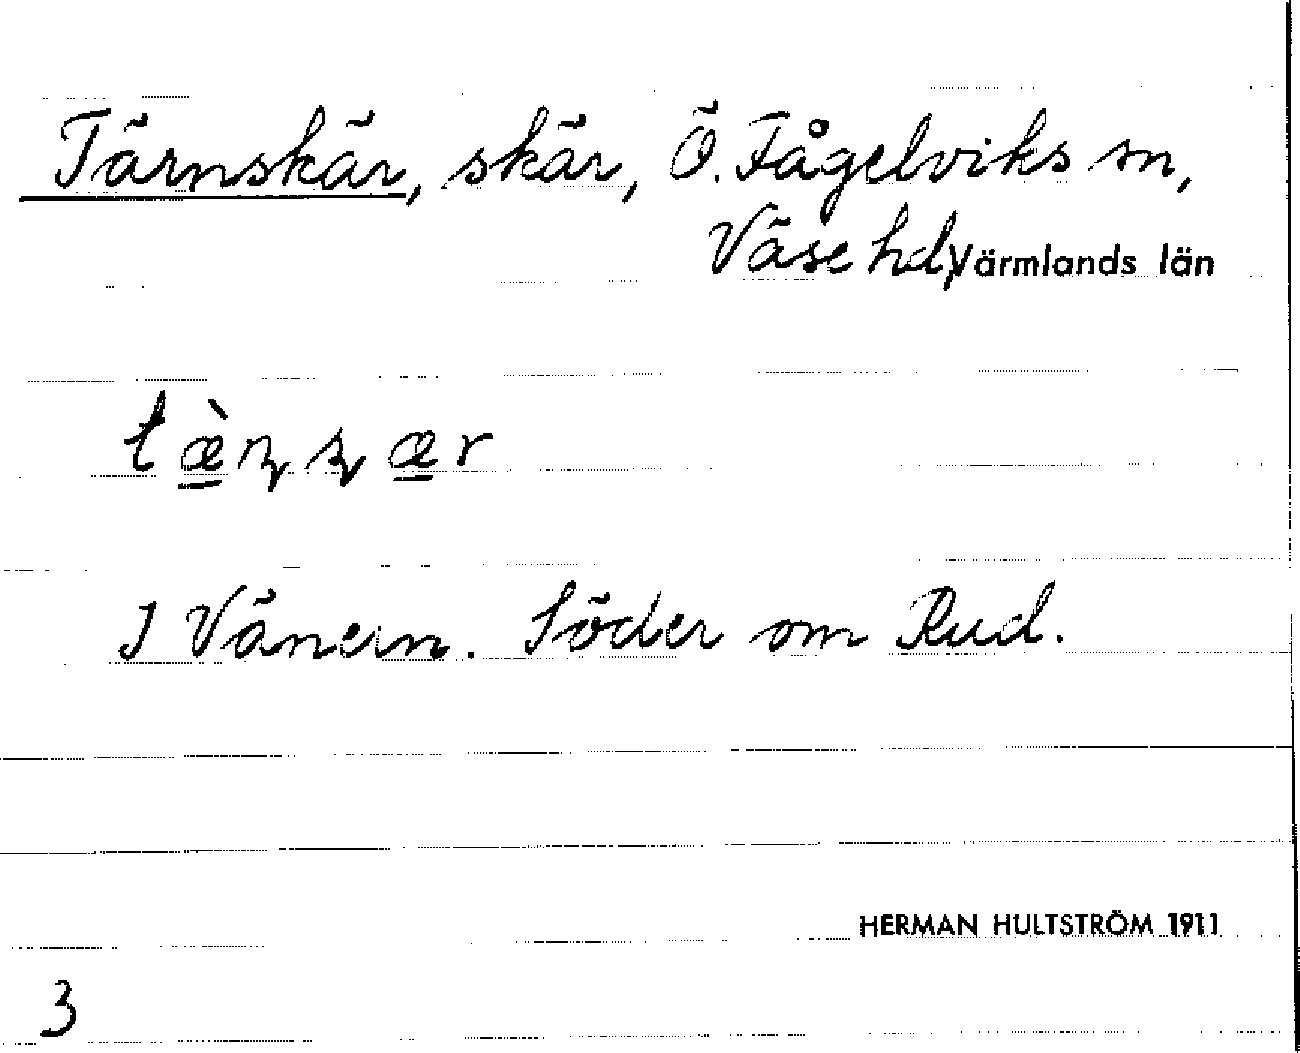 Tärnskär, skär, Ö. Fågelviks sn,
Väse hd, Värmlands län
tæ̲̀ɳʂæ̲r
I Vänern. Söder om Rud.
HERMAN HULTSTRÖM 1911
3